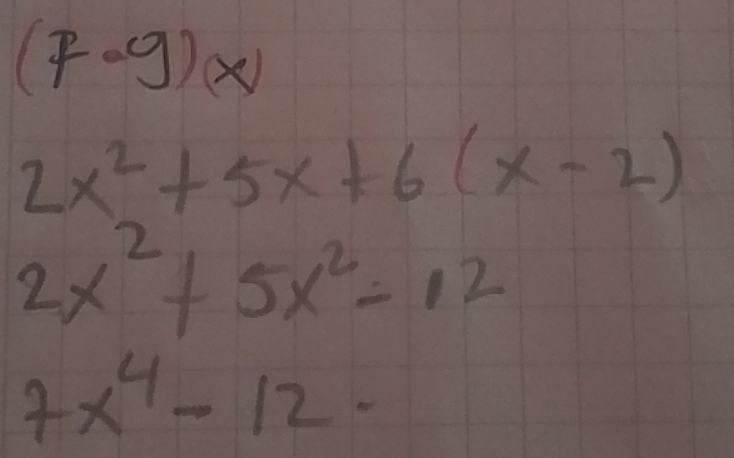 (F•g)(x)
2x² + 5x + 6 (x - 2)
2x² + 5x² - 12
7x⁴ - 12.